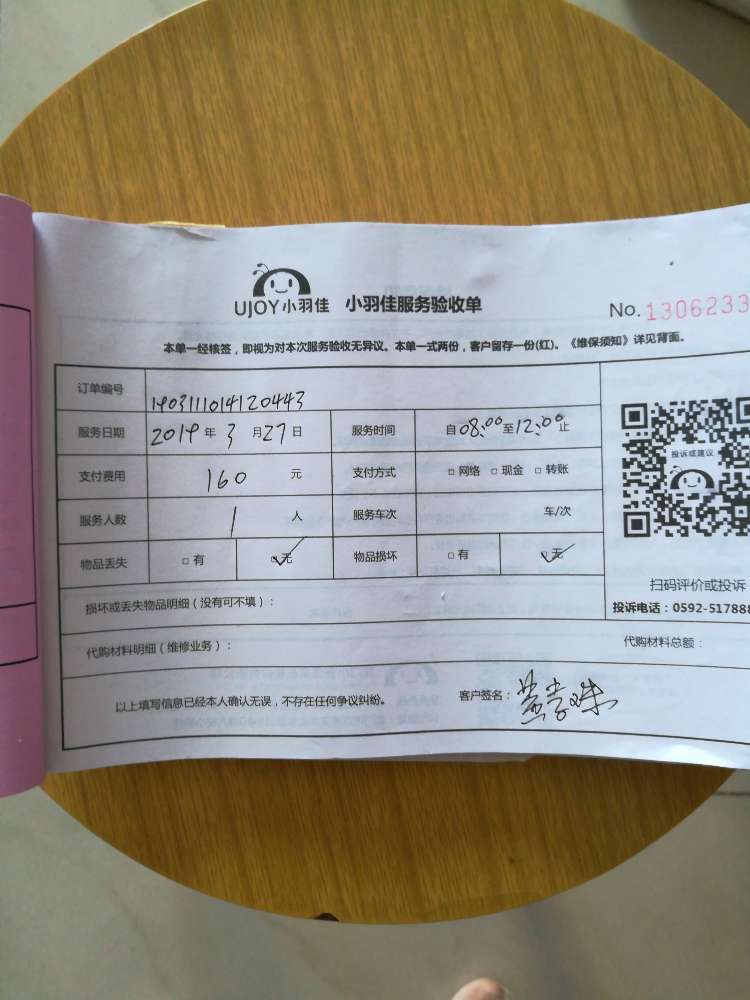 UJOY小羽佳 小羽佳服务验收单
No. 1306233
本单一经核签，即视为对本次服务验收无异议。本单一式两份，客户留存一份(红)。《维保须知》详见背面。
订单编号 1903111014120443
服务日期 2019年3月27日 服务时间 自08:00至12:00止
支付费用 160 元 支付方式 □网络 □现金 □转账
服务人数 1 人 服务车次 车/次
投诉或建议
物品丢失 □有 □无 物品损坏 □有 □无
扫码评价或投诉
损坏或丢失物品明细（没有可不填）：
投诉电话：0592-51788
代购材料明细（维修业务）：
代购材料总额：
以上填写信息已经本人确认无误，不存在任何争议纠纷。 客户签名：